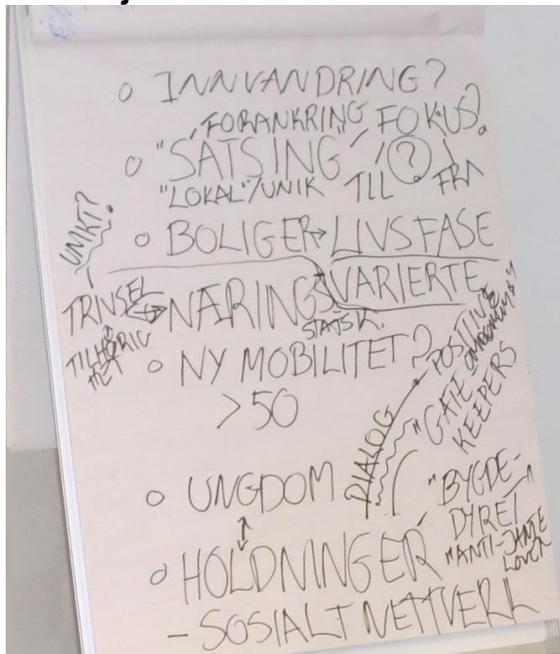 INNVANDRING?
"FORANKRING" FOKUS?
"SATSING" ?
"LOKAL"/UNIK TILL FRA
UNIKT?
BOLIGER → LIVSFASE
VARIERTE
TRIVSEL ↔ NÆRING
STATSK.
TILHØRIG
HET
NY MOBILITET?
>50
POSITIVE
"GATE
KEEPERS
DIALOG
UNGDOM
"BYGDE-
DYRET"
"ANTI-JANTE
LOVEN
HOLDNINGER
- SOSIALT NETTVERK